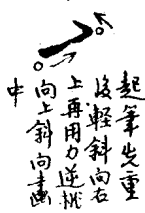 起筆先重
後輕斜向右
上再用力逆挑
向上斜向畫
中